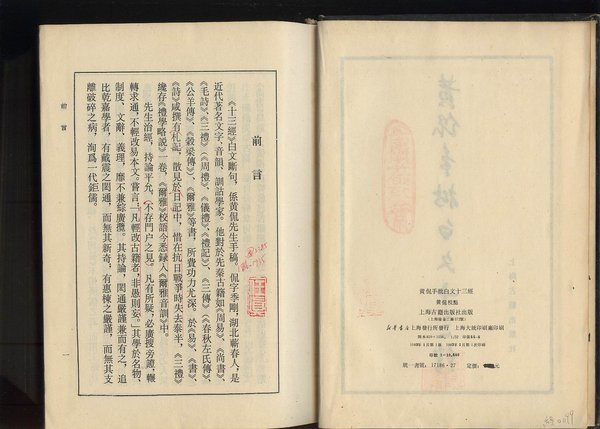 前言
《十三經》白文斷句，係黄侃先生手稿。侃字季剛，湖北蘄春人，是
近代著名文字、音韻、訓詁學家。他對於先秦古籍如《周易》、《尚書》、
《毛詩》、《三禮》（《周禮》、《儀禮》、《禮記》）、《三傳》（《春秋左氏傳》、
《公羊傳》、《穀梁傳》）、《爾雅》等書，所費功力尤深。於《易》、《書》、
《詩》咸撰有札記，散見於日記中，惜在抗日戰爭時失去泰半，《三禮》
纔存《禮學略説》一卷，《爾雅》校語今悉録入《爾雅音訓》中。
先生治經，持論平允，（不存門户之見）凡有所疑，必廣搜旁證，輾
轉求通，不輕改易本文。嘗言：「凡輕改古籍者，非愚則妄。」其學於名物、
制度、文辭、義理，靡不兼綜廣攬。其持論，閎通嚴謹兼而有之，追
比乾嘉學者，有戴震之閎通，而無其新奇；有惠棟之嚴謹，而無其支
離破碎之病，洵爲一代鉅儒。
前言
一
黄侃手批白文十三經
黄侃校點
上海古籍出版社出版
（上海瑞金二路272號）
新華書店上海發行所發行 上海大統印刷廠印刷
1983年1月第1版 1983年1月第1次印刷
統一書號：17186·27 定價：